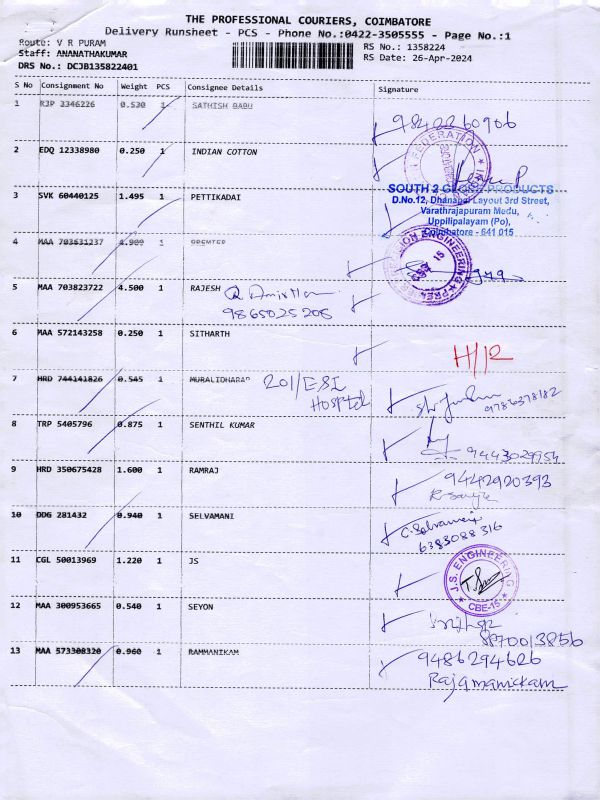 THE PROFESSIONAL COURIERS, COIMBATORE
Delivery Runsheet - PCS - Phone No.:0422-3505555 - Page No.:1
Route: V R PURAM
Staff: ANANATHAKUMAR
DRS No.: DCJB135822401
RS No.: 1358224
RS Date: 26-Apr-2024
S No Consignment No Weight PCS Consignee Details Signature
1 RJP 3346226 0.530 1 SATHISH BABU
2 EDQ 12338980 0.250 1 INDIAN COTTON
FEDERATION
3 SVK 60440125 1.495 1 PETTIKADAI
SOUTH 2 PRODUCTS
D.No.12, Dhanapal Layout 3rd Street,
Varathrajapuram Medu,
Uppilipalayam (Po),
Coimbatore - 641 015
4 MAA 703631237 4.900 1
ENGINEERING
5 MAA 703823722 4.500 1 RAJESH
9865025208
6 MAA 572143258 0.250 1 SITHARTH
H/12
7 HRD 744141826 0.545 1 MURALIDHARAN 201/ESI
Hospital
9786378182
8 TRP 5405796 0.875 1 SENTHIL KUMAR
9443029954
9 HRD 350675428 1.600 1 RAMRAJ 9442920393
10 DDG 281432 0.940 1 SELVAMANI
6383088316
11 CGL 50013969 1.220 1 JS
J.S. ENGINEERING
CBE-15
12 MAA 300953665 0.540 1 SEYON
8870013856
13 MAA 573308320 0.960 1 RAMMANIKAM 9486294626
Rajamanickam